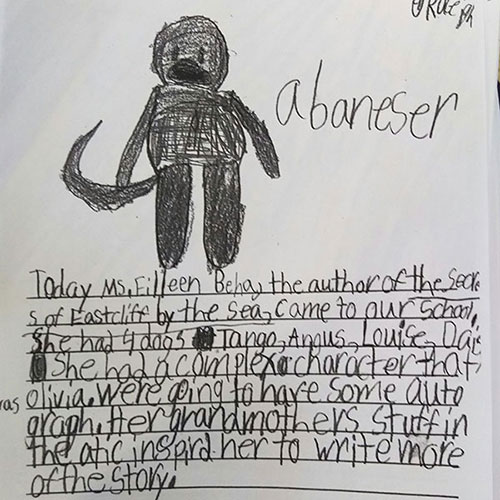 abaneser
Today Ms. Eilleen Beha, the author of the secre
s of Eastcliff by the sea, came to our school,
She had 4 dogs Tango, Angus, Louise, Dais
She had a complex character that
was olivia. Were going to have some auto
graph. Her grandmothers stuff in
the atic inspird her to write more
of the story.